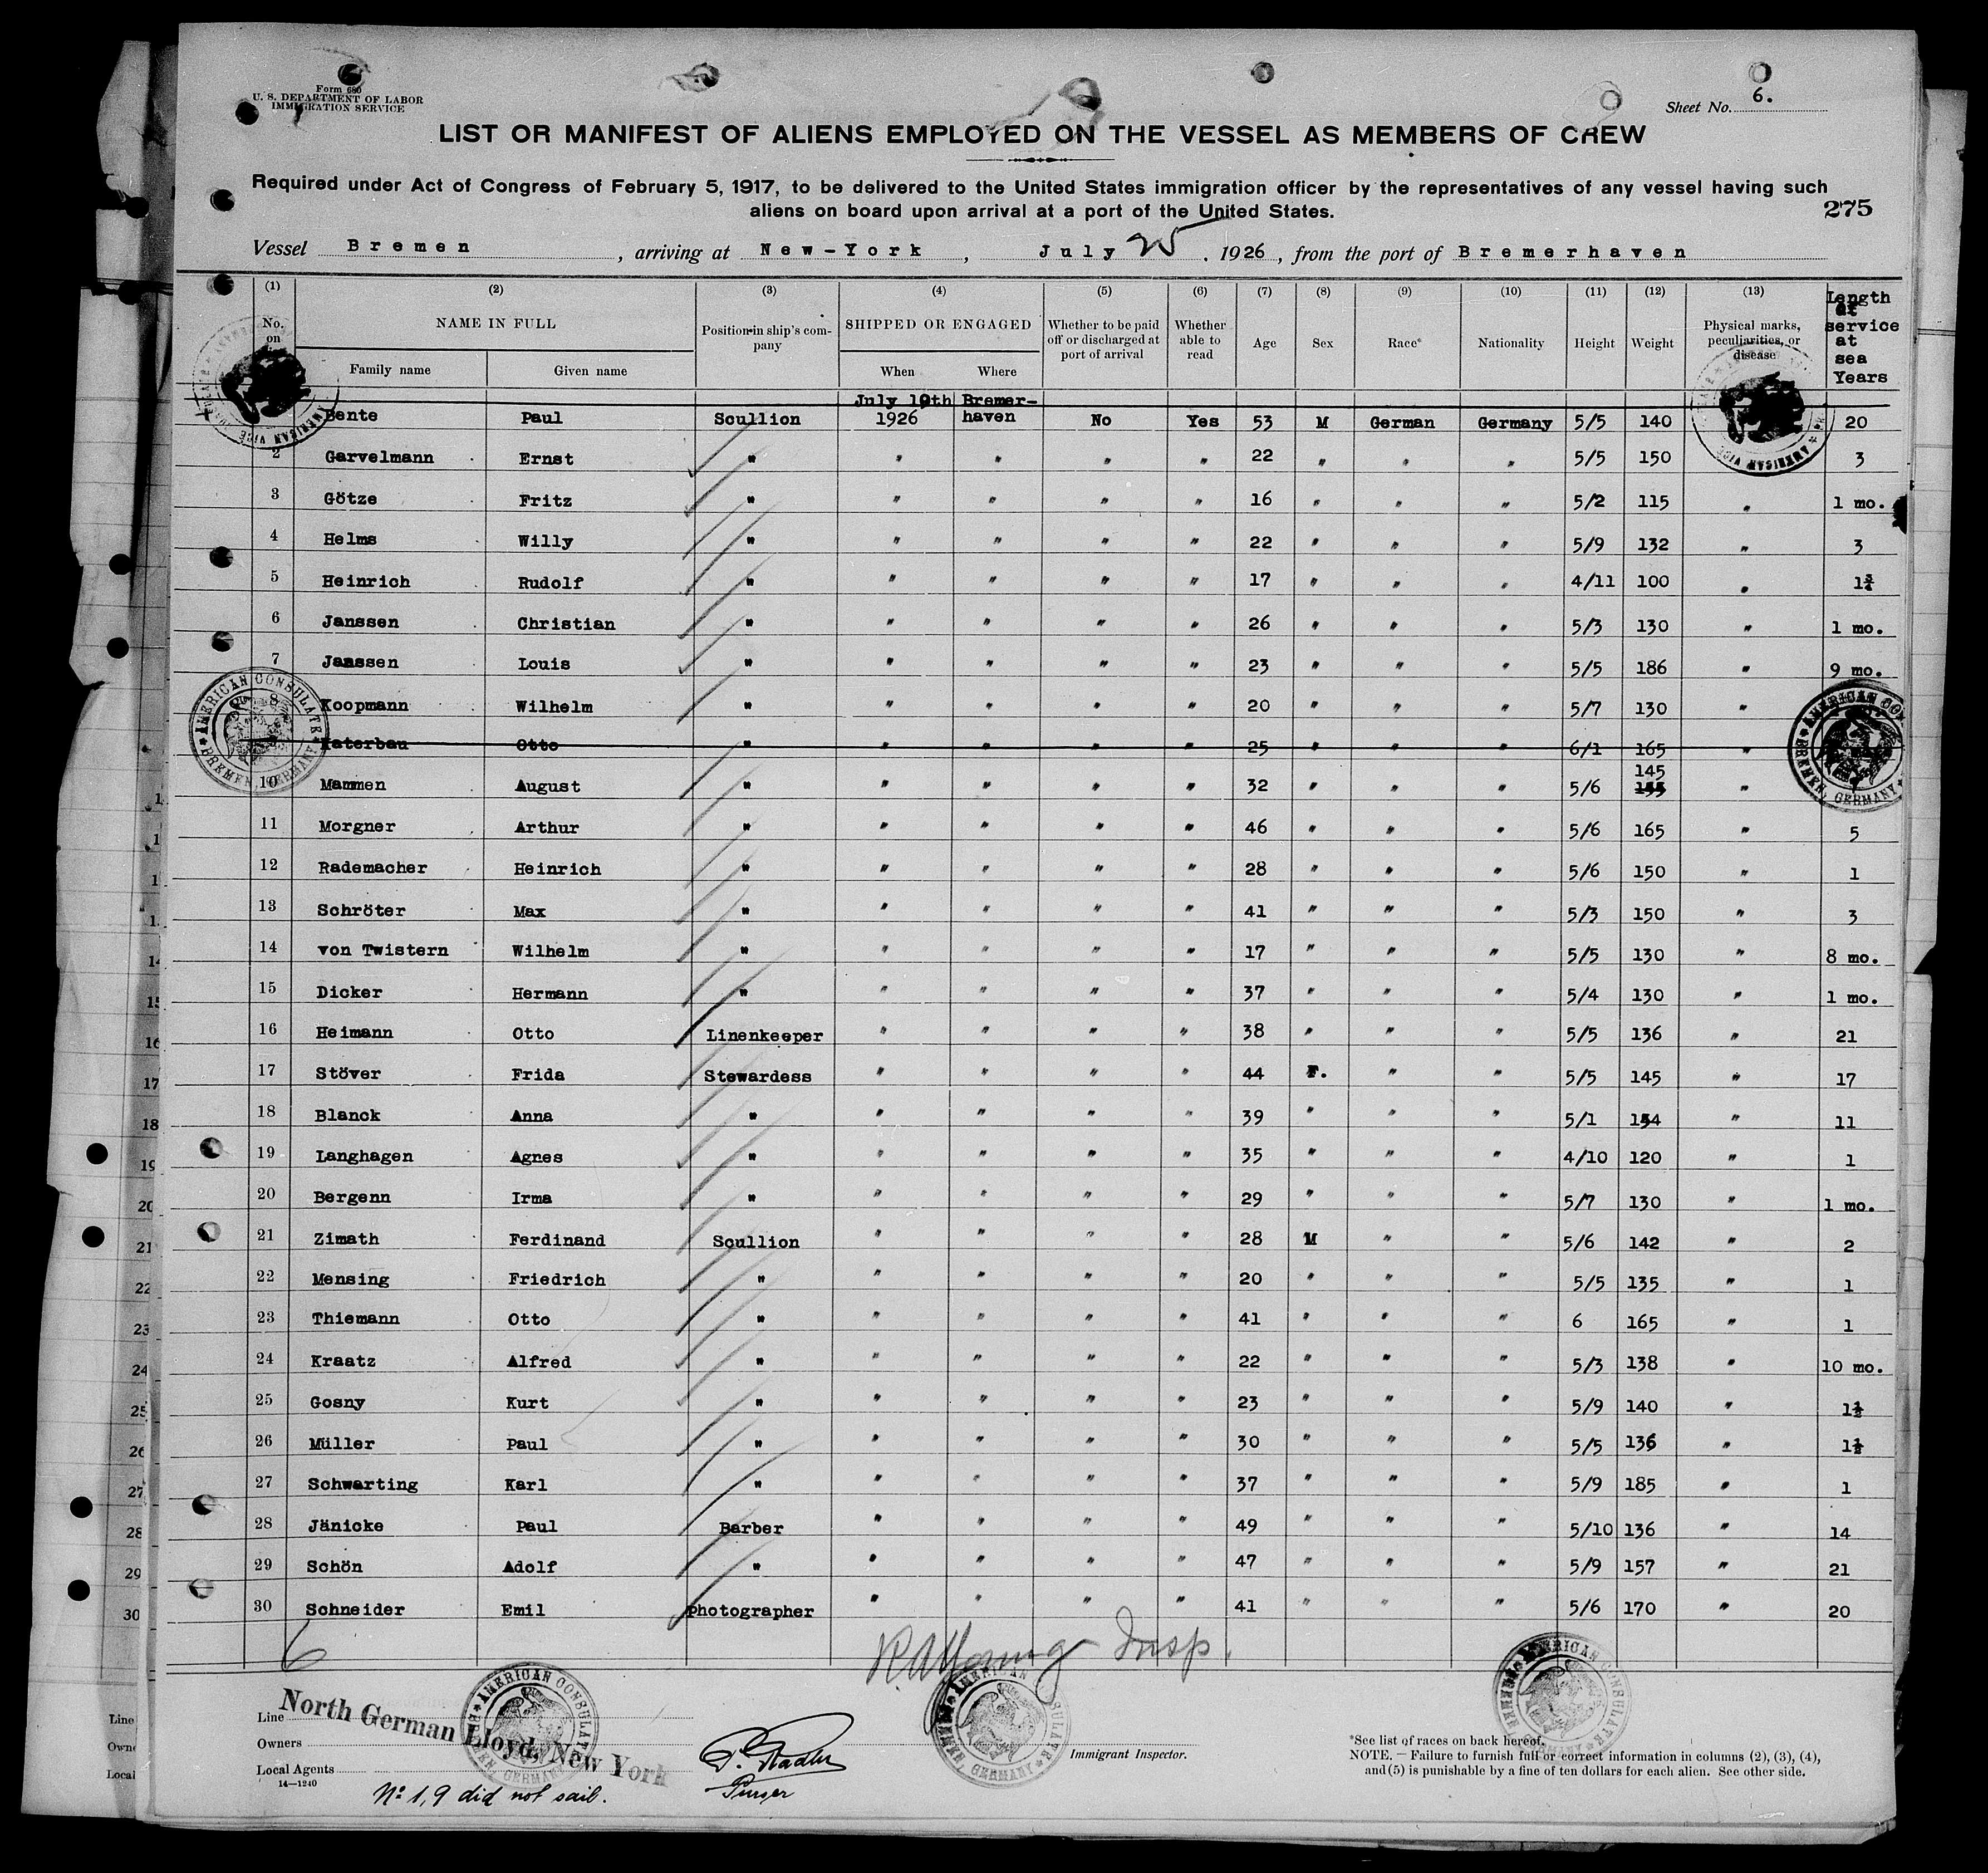 Form 680
U. S. DEPARTMENT OF LABOR
IMMIGRATION SERVICE
Sheet No. 6.
LIST OR MANIFEST OF ALIENS EMPLOYED ON THE VESSEL AS MEMBERS OF CREW
Required under Act of Congress of February 5, 1917, to be delivered to the United States immigration officer by the representatives of any vessel having such
aliens on board upon arrival at a port of the United States.
275
Vessel Bremen, arriving at New-York, July 25, 1926, from the port of Bremerhaven
(1) (2) (3) (4) (5) (6) (7) (8) (9) (10) (11) (12) (13)
No. on NAME IN FULL Family name Given name Position in ship's company SHIPPED OR ENGAGED When Where Whether to be paid off or discharged at port of arrival Whether able to read Age Sex Race* Nationality Height Weight Physical marks, peculiarities, or disease Length of service at sea Years
July 19th Bremer-
Bente Paul Scullion 1926 haven No Yes 53 M German Germany 5/5 140 20
2 Garvelmann Ernst " " " " " 22 " " " 5/5 150 3
3 Götze Fritz " " " " " 16 " " " 5/2 115 " 1 mo.
4 Helms Willy " " " " " 22 " " " 5/9 132 " 3
5 Heinrich Rudolf " " " " " 17 " " " 4/11 100 " 1¾
6 Janssen Christian " " " " " 26 " " " 5/3 130 " 1 mo.
7 Janssen Louis " " " " " 23 " " " 5/5 186 " 9 mo.
8 Koopmann Wilhelm " " " " " 20 " " " 5/7 130 "
Katerbau Otto " " " " " 25 " " " 6/1 165 "
145
10 Mammen August " " " " " 32 " " " 5/6 155 "
11 Morgner Arthur " " " " " 46 " " " 5/6 165 " 5
12 Rademacher Heinrich " " " " " 28 " " " 5/6 150 " 1
13 Schröter Max " " " " " 41 " " " 5/3 150 " 3
14 von Twistern Wilhelm " " " " " 17 " " " 5/5 130 " 8 mo.
15 Dicker Hermann " " " " " 37 " " " 5/4 130 " 1 mo.
16 Heimann Otto Linenkeeper " " " " 38 " " " 5/5 136 " 21
17 Stöver Frida Stewardess " " " " 44 F. " " 5/5 145 " 17
18 Blanck Anna " " " " " 39 " " " 5/1 154 " 11
19 Langhagen Agnes " " " " " 35 " " " 4/10 120 " 1
20 Bergenn Irma " " " " " 29 " " " 5/7 130 " 1 mo.
21 Zimath Ferdinand Scullion " " " " 28 M " " 5/6 142 " 2
22 Mensing Friedrich " " " " " 20 " " " 5/5 135 " 1
23 Thiemann Otto " " " " " 41 " " " 6 165 " 1
24 Kraatz Alfred " " " " " 22 " " " 5/3 138 " 10 mo.
25 Gosny Kurt " " " " " 23 " " " 5/9 140 " 1½
26 Müller Paul " " " " " 30 " " " 5/5 136 " 1½
27 Schwarting Karl " " " " " 37 " " " 5/9 185 " 1
28 Jänicke Paul Barber " " " " 49 " " " 5/10 136 " 14
29 Schön Adolf " " " " " 47 " " " 5/9 157 " 21
30 Schneider Emil Photographer " " " " 41 " " " 5/6 170 " 20
6
Insp.
Line
Owners
Local Agents
North German Lloyd, New York
14—1240
No 1, 9 did not sail.
Purser
Immigrant Inspector.
*See list of races on back hereof.
NOTE. — Failure to furnish full or correct information in columns (2), (3), (4),
and (5) is punishable by a fine of ten dollars for each alien. See other side.
AMERICAN CONSULATE BREMEN, GERMANY